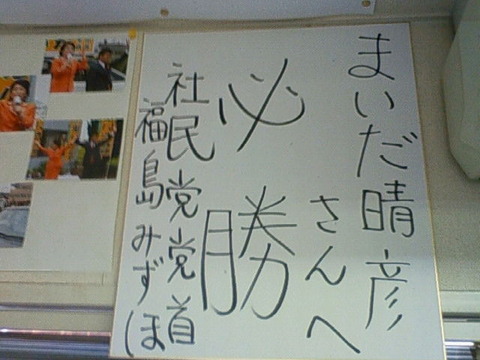 まいだ晴彦
さんへ
必勝
社民党党首
福島みずほ